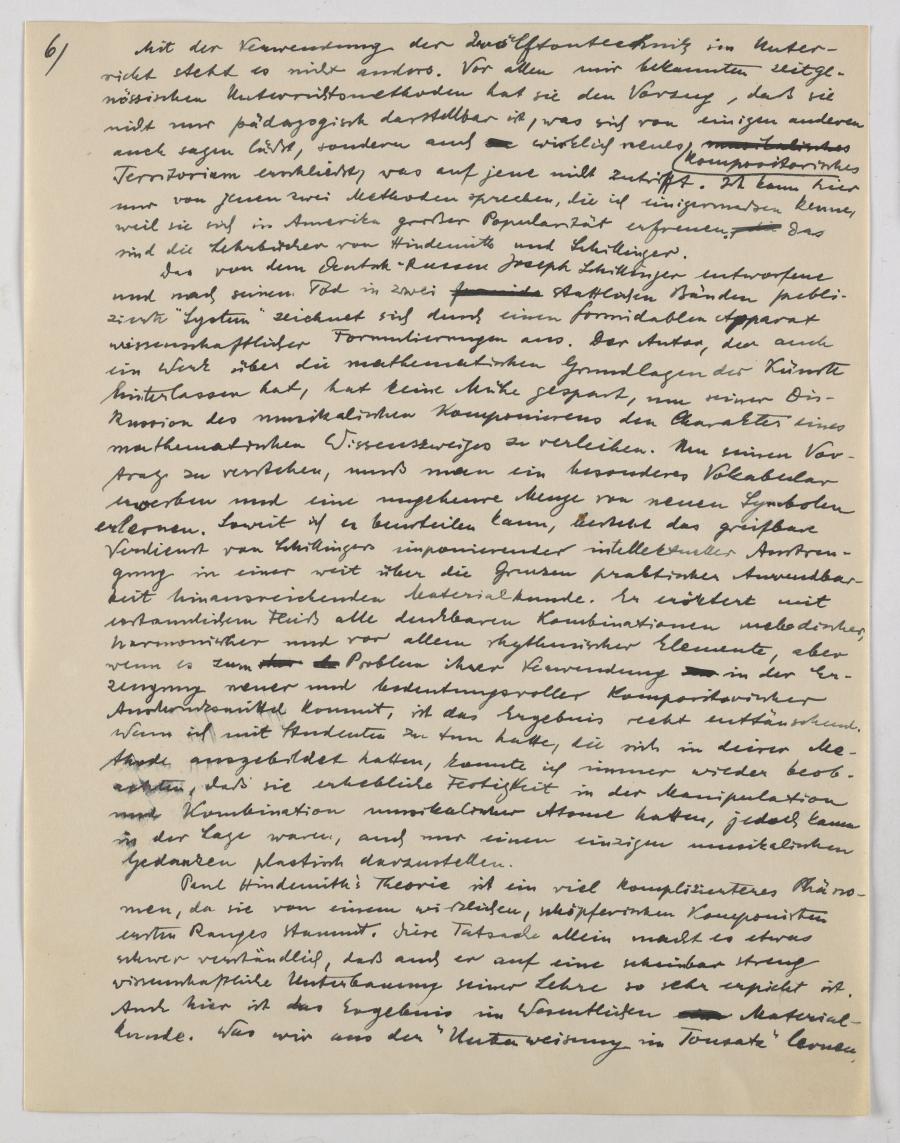 6/
Mit der Verwendung der Zwölftontechnik im Unter-
richt steht es nicht anders. Vor allen mir bekannten zeitge-
nössischen Unterrichtsmethoden hat sie den Vorzug, daß sie
nicht nur pädagogisch darstellbar ist, was sich von einigen anderen
auch sagen läßt, sondern auch wirklich neues, musikalisches
kompositorisches
Territorium erschließt, was auf jene nicht zutrifft. Ich kann hier
nur von jenen zwei Methoden sprechen, die ich einigermassen kenne,
weil sie sich in Amerika großer Popularität erfreuen, die Das
sind die Lehrbücher von Hindemith und Schillinger.
Das von dem Deutsch-Russen Joseph Schillinger entworfene
und nach seinem Tod in zwei stattlichen Bänden publi-
zierte "System" zeichnet sich durch einen formidablen Apparat
wissenschaftlicher Formulierungen aus. Der Autor, der auch
ein Werk über die mathematischen Grundlagen der Künste
hinterlassen hat, hat keine Mühe gespart, um seiner Dis-
kussion des musikalischen Komponierens den Charakter eines
mathematischen Wissenszweiges zu verleihen. Um seinen Vor-
trag zu verstehen, muß man ein besonderes Vokabular
erwerben und eine ungeheure Menge von neuen Symbolen
erlernen. Soweit ich es beurteilen kann, besteht das greifbare
Verdienst von Schillingers imponierender intellektueller Anstren-
gung in einer weit über die Grenzen praktischer Anwendbar-
keit hinausreichenden Materialkunde. Er erörtert mit
erstaunlichem Fleiß alle denkbaren Kombinationen melodischer,
harmonischer und vor allem rhythmischer Elemente, aber
wenn es zum Problem ihrer Verwendung in der Er-
zeugung neuer und bedeutungsvoller kompositorischer
Ausdrucksmittel kommt, ist das Ergebnis recht enttäuschend.
Wenn ich mit Studenten zu tun hatte, die sich in dieser Me-
thode ausgebildet hatten, konnte ich immer wieder beob-
achten, daß sie erhebliche Fertigkeit in der Manipulation
und Kombination musikalischer Atome hatten, jedoch kaum
in der Lage waren, auch nur einen einzigen musikalischen
Gedanken plastisch darzustellen.
Paul Hindemith's Theorie ist ein viel komplizierteres Phäno-
men, da sie von einem wirklichen, schöpferischen Komponisten
ersten Ranges stammt. Diese Tatsache allein macht es etwas
schwer verständlich, daß auch er auf eine scheinbar streng
wissenschaftliche Unterbauung seiner Lehre so sehr erpicht ist.
Auch hier ist das Ergebnis im Wesentlichen Material-
kunde. Was wir aus der "Unterweisung im Tonsatz" lernen,